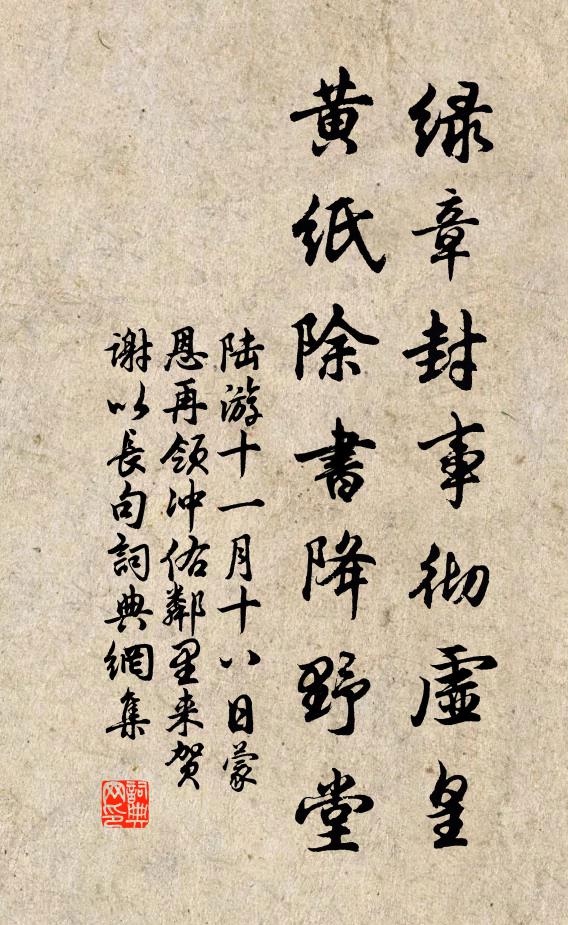 緑章封事彻虛皇
黃紙除書降野堂
陆游十一月十八日蒙
恩再领冲佑鄰里来贺
谢以長句詞典網集
詞典
网印